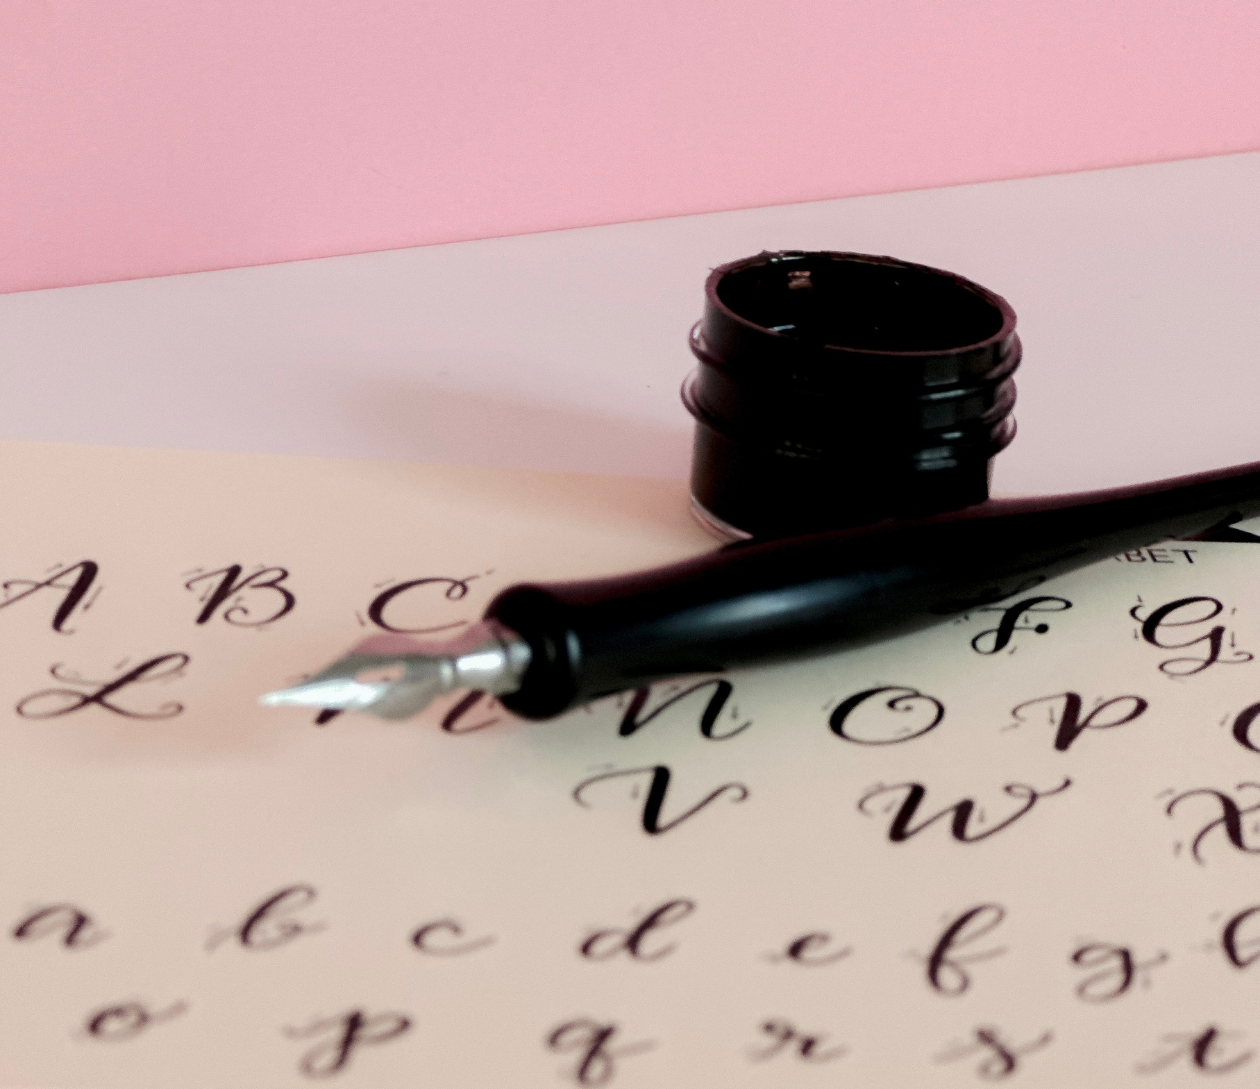 BET
A B C F G
L M N O P
V W X
a b c d e f g
o p q r s t